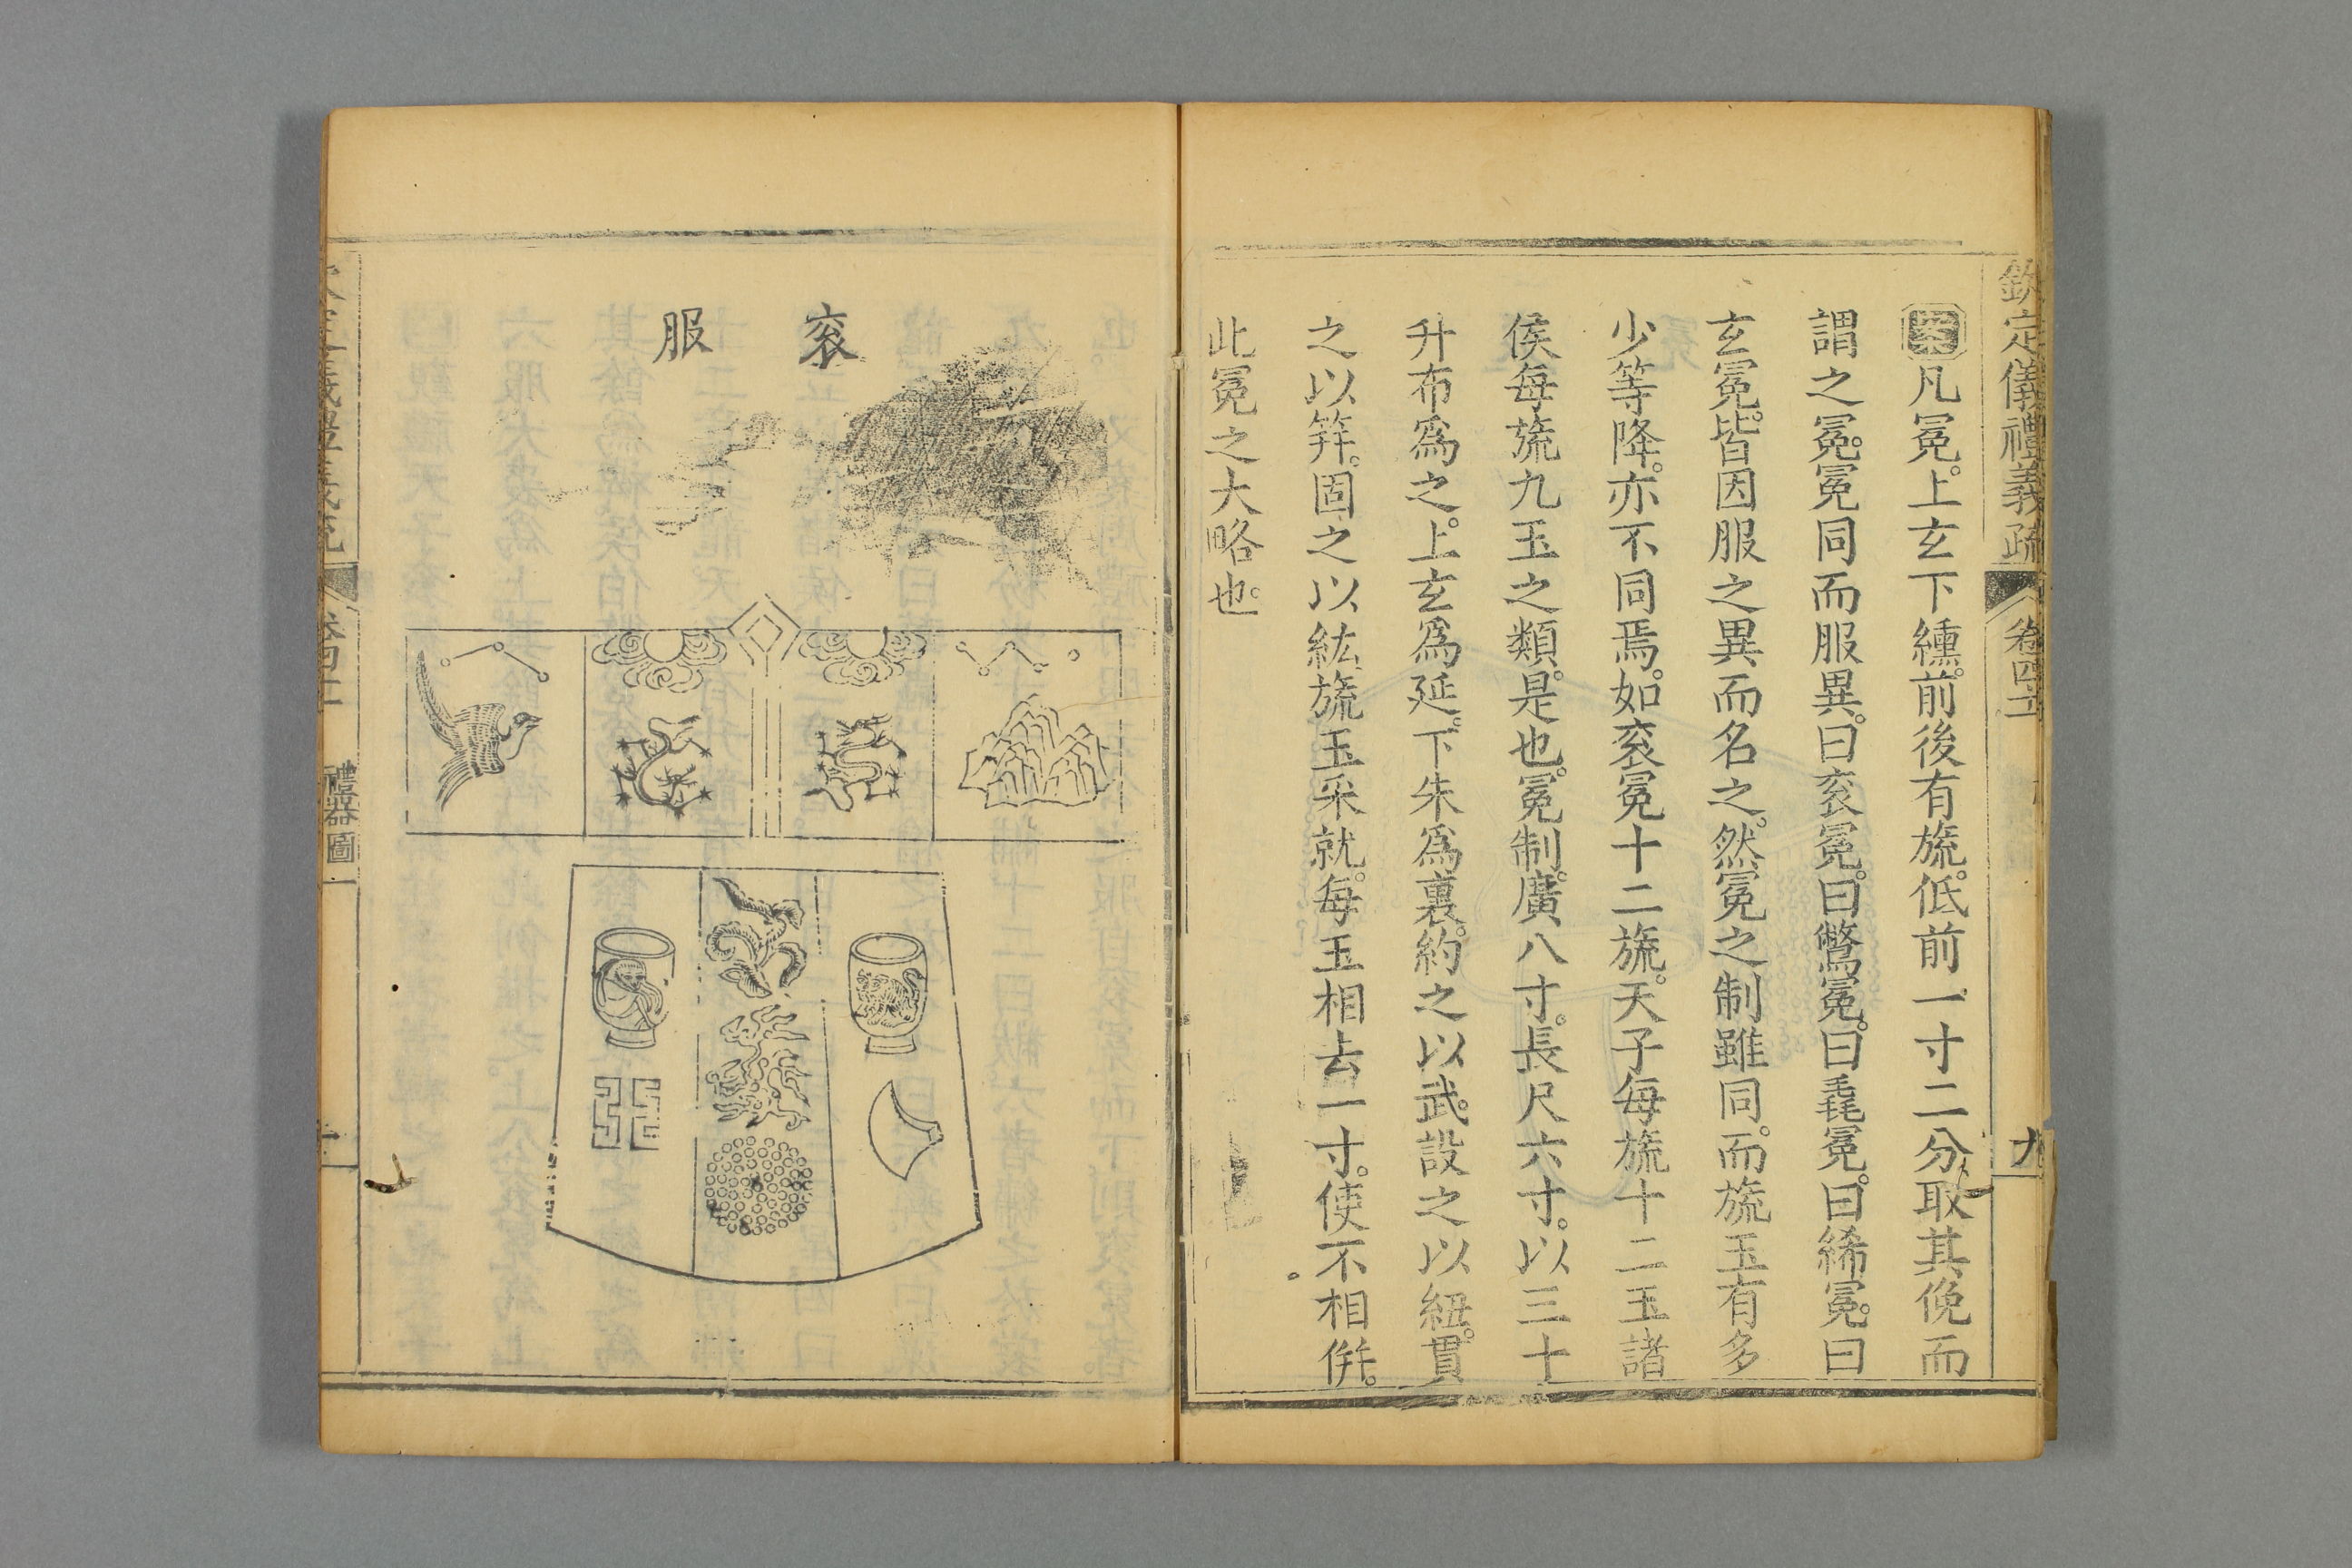 欽定儀禮義疏
卷四五
九
案凡冕。上玄下纁。前後有旒。低前一寸二分取其俛而
謂之冕。冕同而服異。曰衮冕。曰鷩冕。曰毳冕。曰絺冕。曰
玄冕。皆因服之異而名之。然冕之制雖同。而旒玉有多
少等降。亦不同焉。如衮冕十二旒。天子每旒十二玉諸
侯每旒九玉之類。是也。冕制。廣八寸。長尺六寸。以三十
升布爲之。上玄爲延。下朱爲裏。約之以武。設之以紐。貫
之以笄。固之以紘旒玉采就。每玉相去一寸。使不相併。
此冕之大略也。
衮服
禮器圖